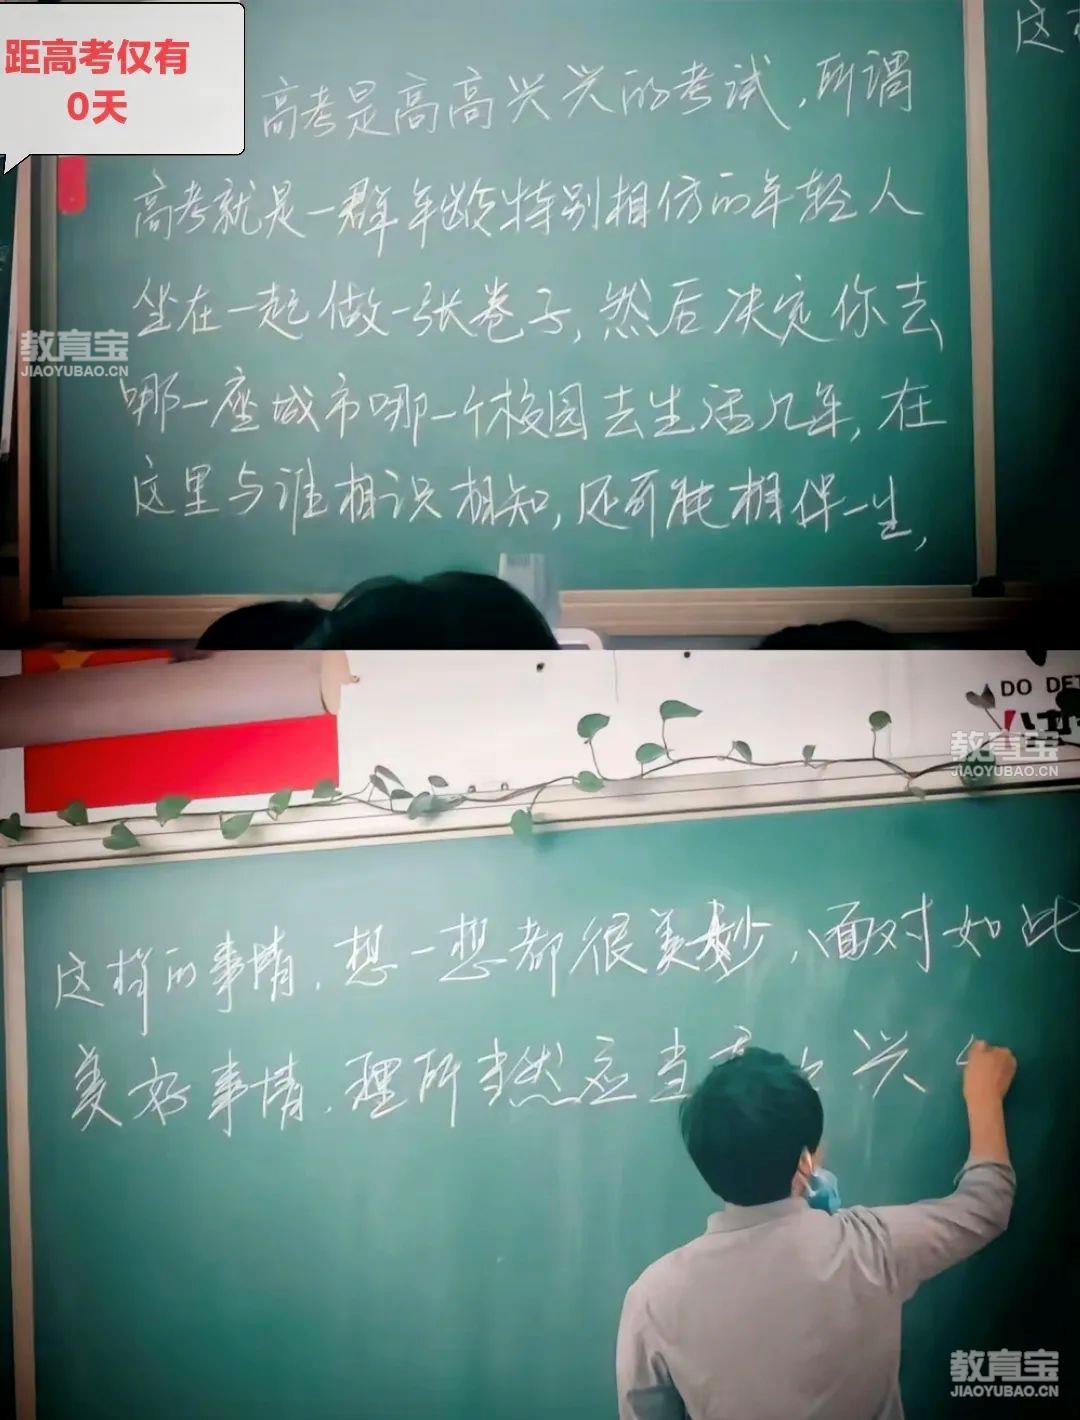 距高考仅有
0天
这
高考是高高兴兴的考试，所谓
高考就是一群年龄特别相仿的年轻人
坐在一起做一张卷子，然后决定你去
哪一座城市哪一个校园去生活几年，在
这里与谁相识相知，还可能相伴一生，
教育宝
JIAOYUBAO.CN
DO DET
教育宝
JIAOYUBAO.CN
这样的事情，想一想都很美妙，面对如此
美好事情，理所当然应当高 兴
教育宝
JIAOYUBAO.CN